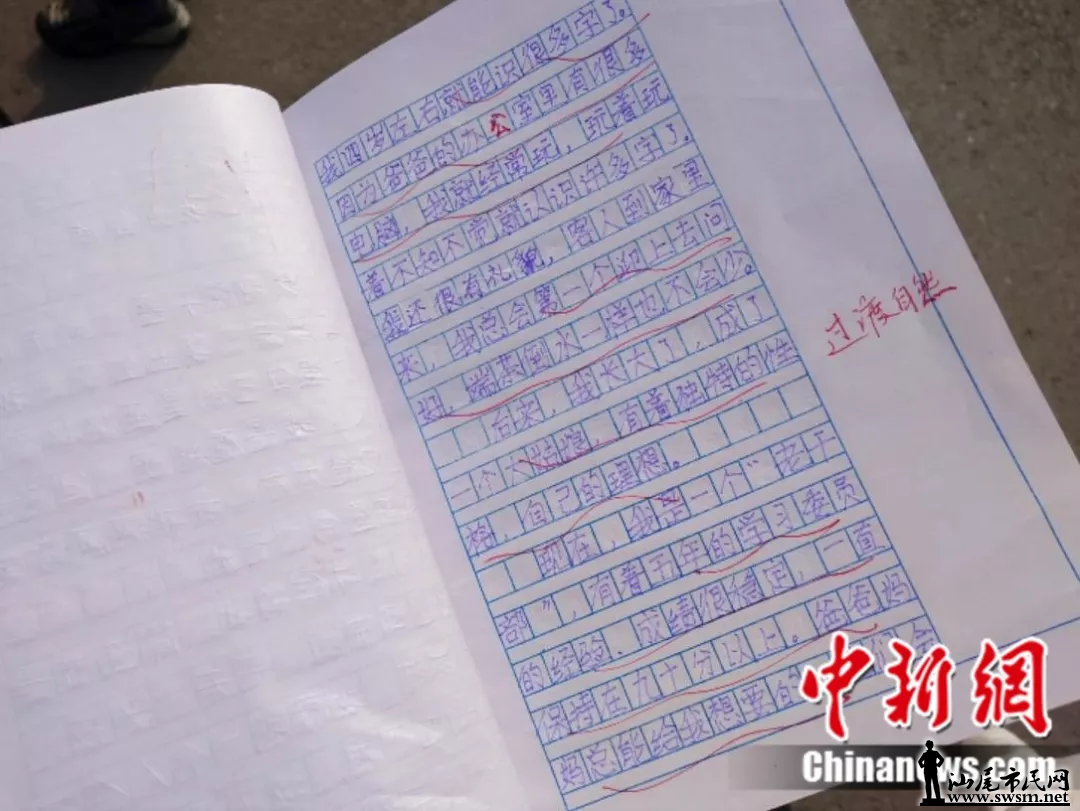 我四岁左右就能识很多字了。
因为爸爸的办公室里有很多
电脑，我就经常玩，玩着玩
着不知不觉就认识许多字了。
我还很有礼貌，客人到家里
来，我总会第一个迎上去问
好，端茶倒水一样也不会少。
后来，我长大了，成了
一个大姑娘，有着独特的性
格，自己的理想。
现在，我是一个“老干
部”，有着五年的学习委员
的经验，成绩很稳定，一直
保持在九十分以上。爸爸妈
妈总能给我想要的
过渡自然
中新網
Chinanews.com
汕尾市民网
www.swsm.net